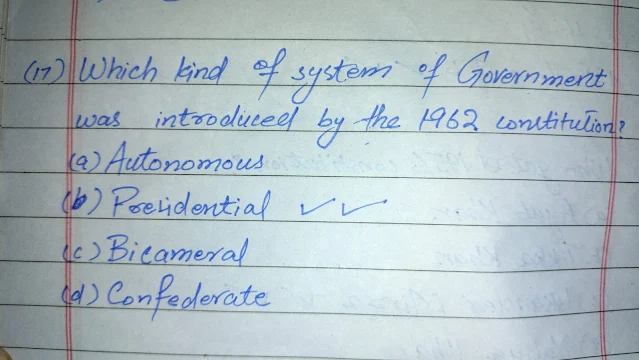 (17) Which kind of system of Government
was introduced by the 1962 constitution?
(a) Autonomous
(b) Presidential ✓✓
(c) Bicameral
(d) Confederate